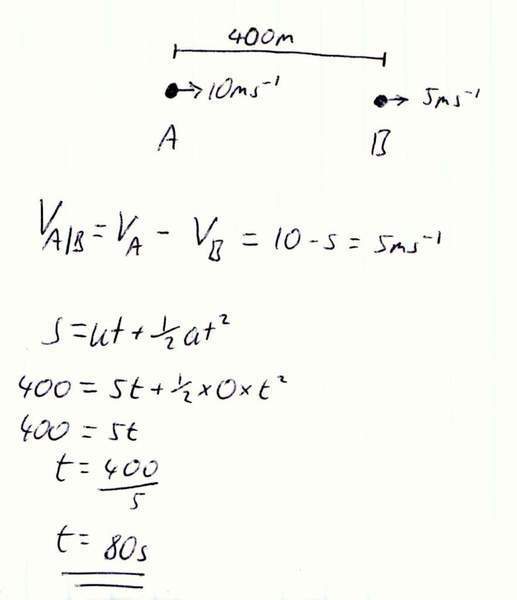 400m
10ms⁻¹
5ms⁻¹
A
B
V_A/B = V_A - V_B = 10 - 5 = 5ms⁻¹
s = ut + ½at²
400 = 5t + ½ × 0 × t²
400 = 5t
t = 400/5
t = 80s